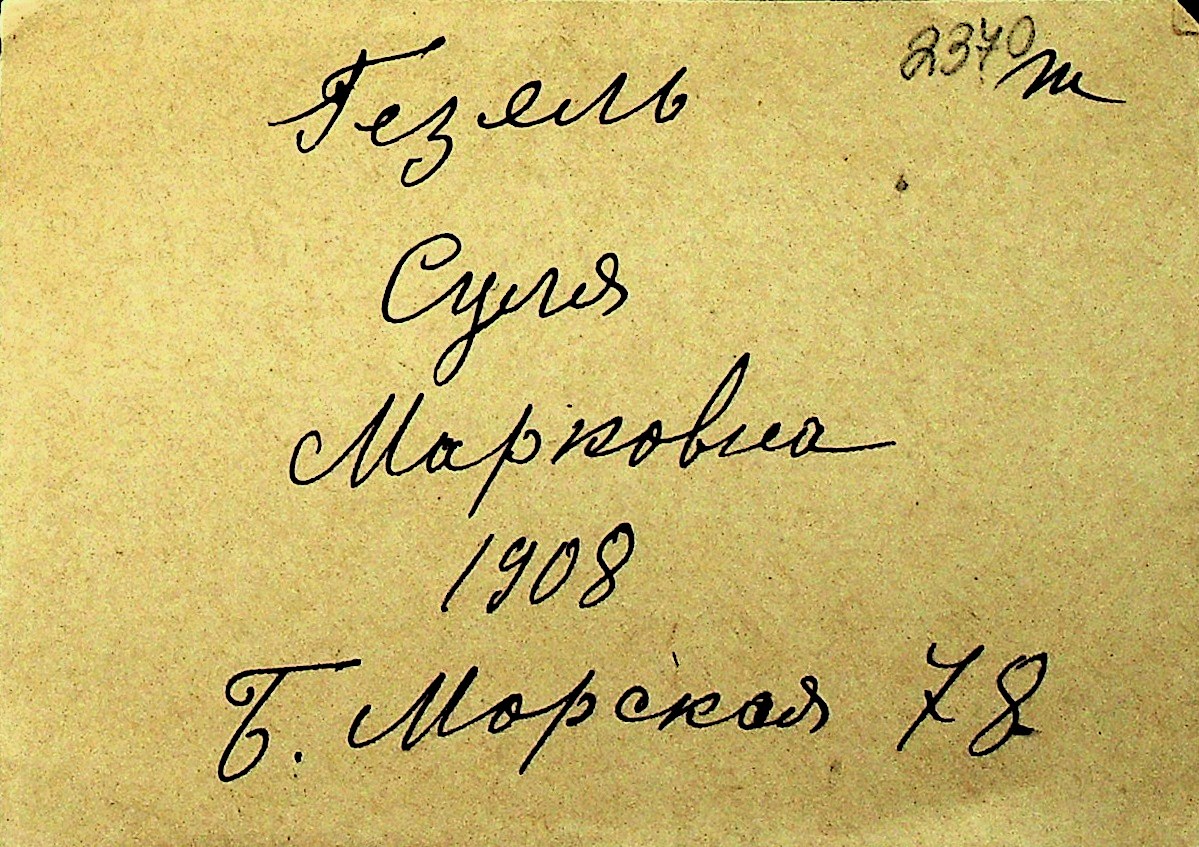 2370 т
Гезель
Суля
Марковна
1908
Б. Морская 78